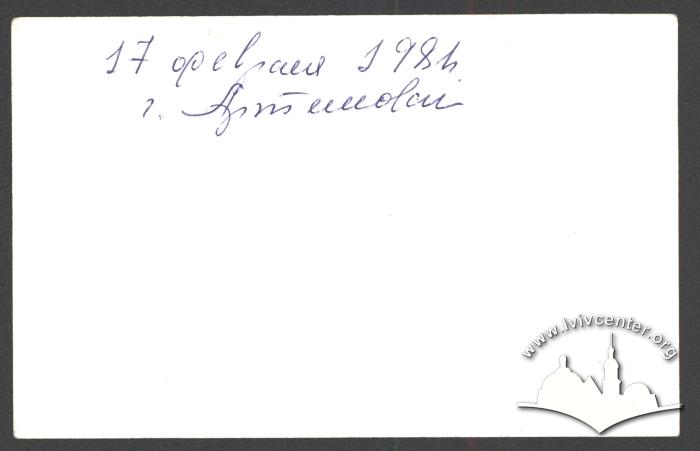 17 февраля 1984
г. Артемовск
www.lvivcenter.org